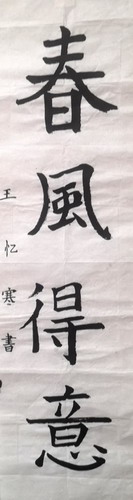 春風得意
王忆寒書